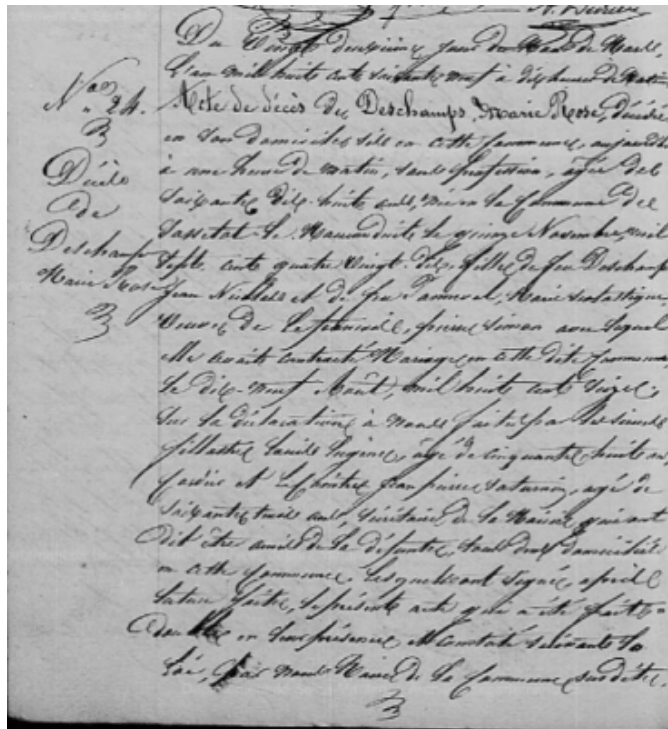 Du Vingt deuxième jour du Mois de Mars,
L'an mil huit cent soixante neuf à dix heures du Matin
N° 24.
Acte de décès de Deschamps, Marie Rose, décédée
en son domicile sis en cette Commune, aujourd'hui
à une heure du matin, sans profession, âgée de
soixante dix-huit ans, née en la Commune de
Sassetot-le-Mauconduit le quinze Novembre, mil
sept cent quatre Vingt-dix, fille de feu Deschamps
Jean Nicolas et de feu Tanneval, Marie scolastique
Veuve de pierre simon avec lequel
elle avait contracté Mariage en cette dite Commune
le dix-neuf Août, mil huit cent seize.
Sur la déclaration à nous faite par les sieurs
fillastre Louis âgé de cinquante huit ans
et Jean pierre saturnin, agé de
soixante trois ans, sécrétaire de la Mairie qui ont
dit être amis de la défunte, tous deux domiciliés
en cette Commune. Lesquels ont signé, après
lecture faite, le présent acte qui a été fait
double en leur présence et constaté suivant la
loi, par nous Maire de la Commune susdite.
Décès
de
Deschamps
Marie Rose